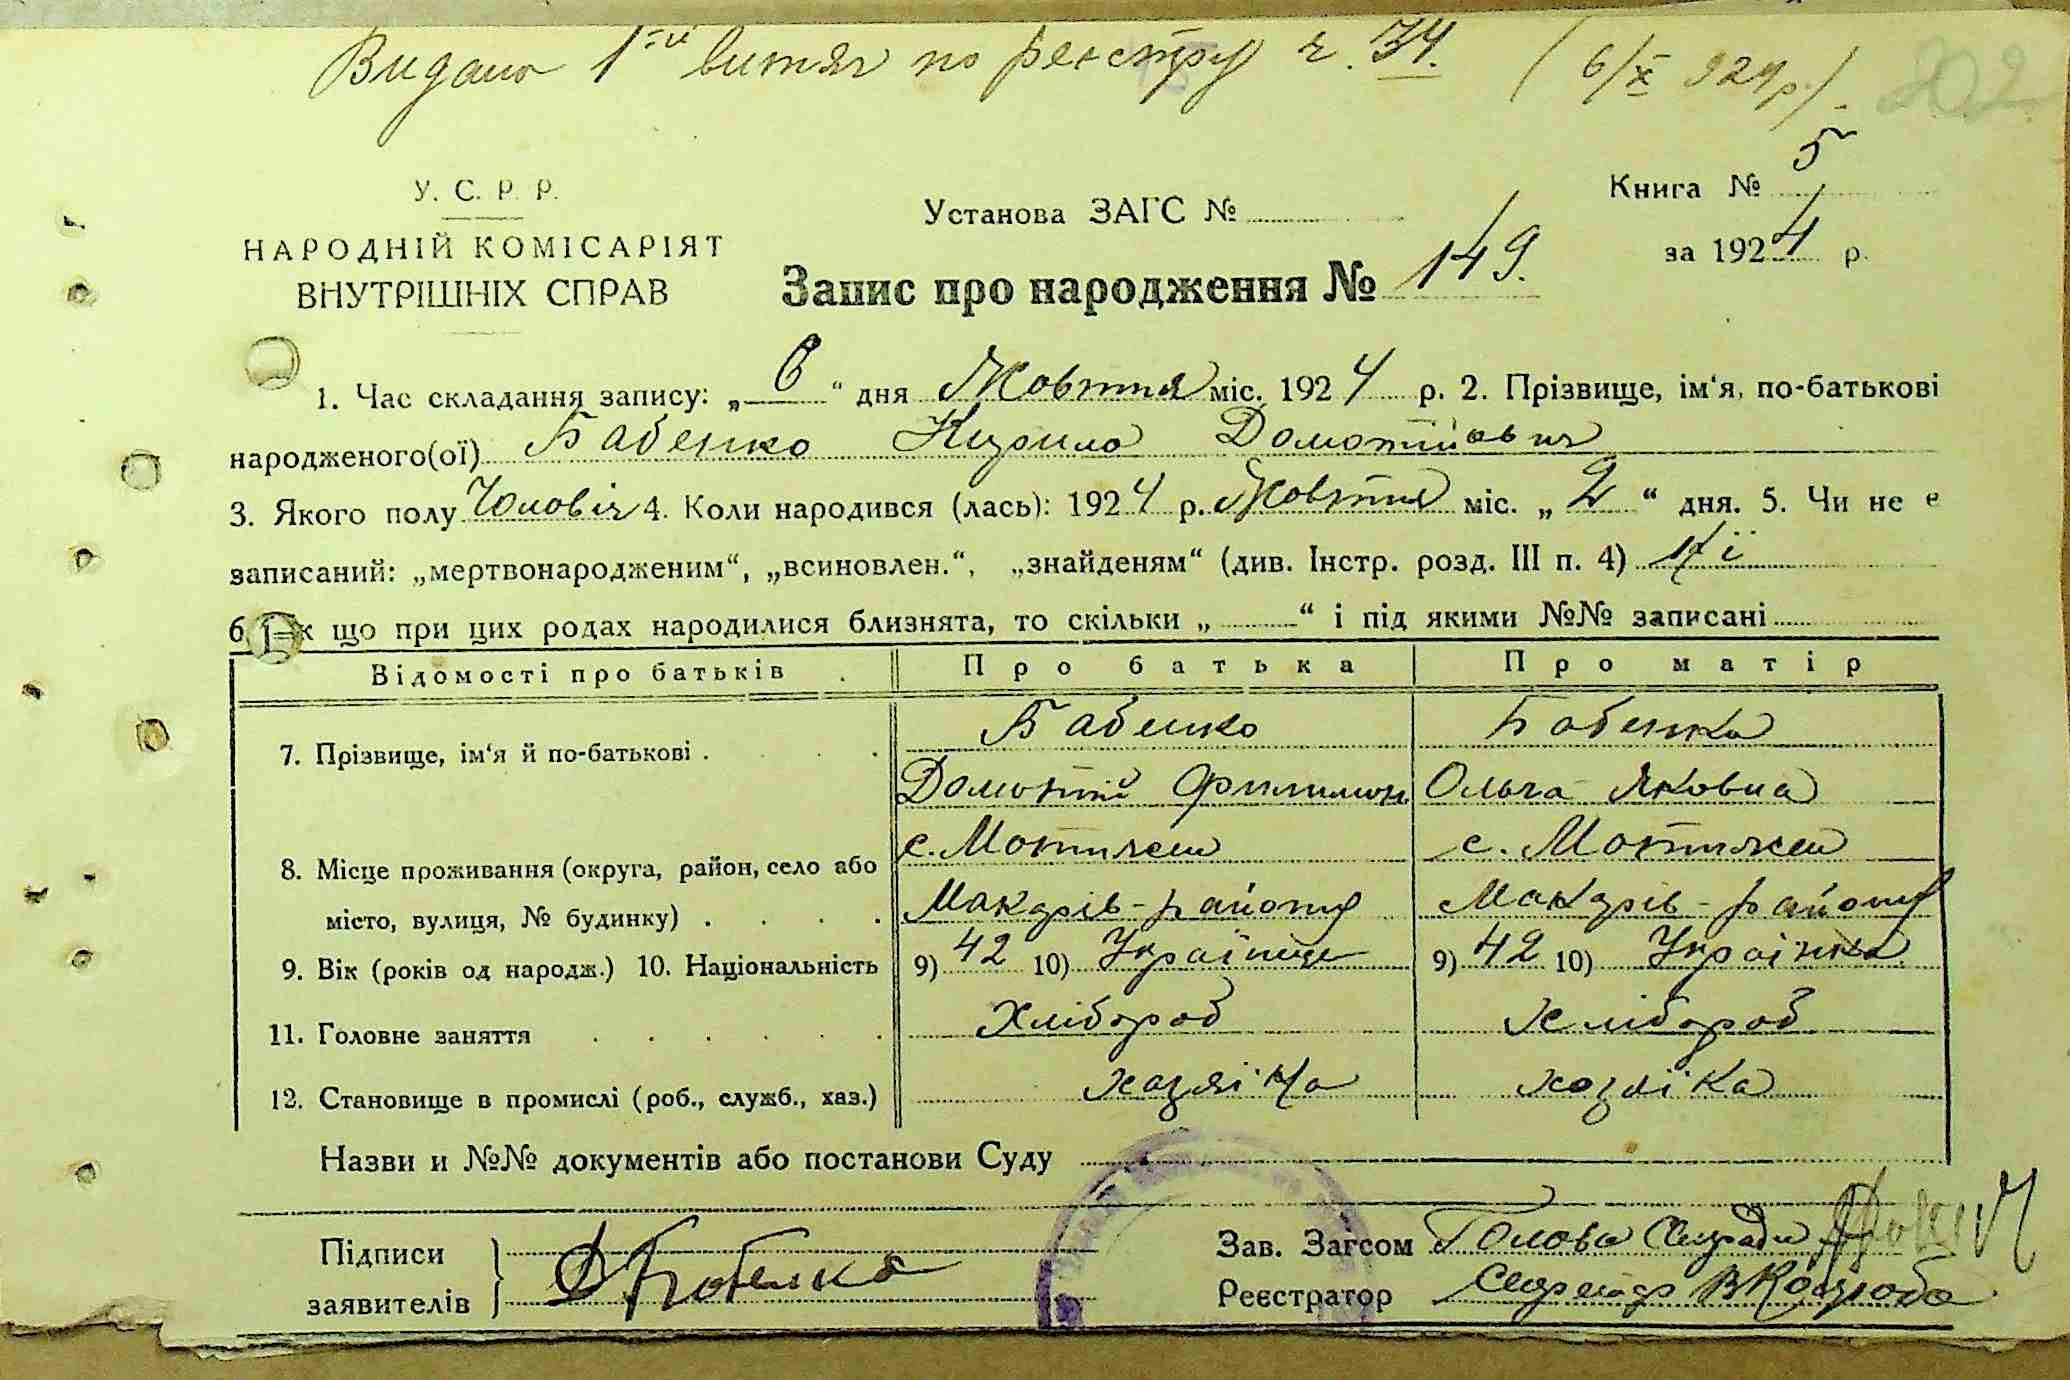 Видано 1ий витяг по реєстру ч. 34. (6/X 924 р.)
202
У. С. Р. Р.
НАРОДНІЙ КОМІСАРІЯТ
ВНУТРІШНІХ СПРАВ
Установа ЗАГС №
Книга № 5
за 1924 р.
Запис про народження № 149.
1. Час складання запису: „6“ дня Жовтня міс. 1924 р. 2. Прізвище, ім‘я, по-батькові
народженого(ої) Бабенко Кирило Домотійович
3. Якого полу Чоловіч 4. Коли народився (лась): 1924 р. Жовтня міс. „2“ дня. 5. Чи не є
записаний: „мертвонародженим“, „всиновлен.“, „знайденям“ (див. Інстр. розд. III п. 4) Ні
6. Як що при цих родах народилися близнята, то скільки „ “ і під якими №№ записані
Відомості про батьків Про батька Про матір
7. Прізвище, ім‘я й по-батькові Бабенко Бабенко
Домотій Филимон Ольга Яковна
8. Місце проживання (округа, район, село або с. Мотижен с. Мотижен
місто, вулиця, № будинку) Макарів-району Макарів-району
9. Вік (років од народж.) 10. Національність 9) 42 10) Українець 9) 42 10) Українка
11. Головне заняття Хлібороб Хлібороб
12. Становище в промислі (роб., служб., хаз.) хазяїна хозяїка
Назви и №№ документів або постанови Суду
Підписи
заявителів } Д Бабенко
Зав. Загсом Голова Сільради
Реєстратор Секретар В Козюба